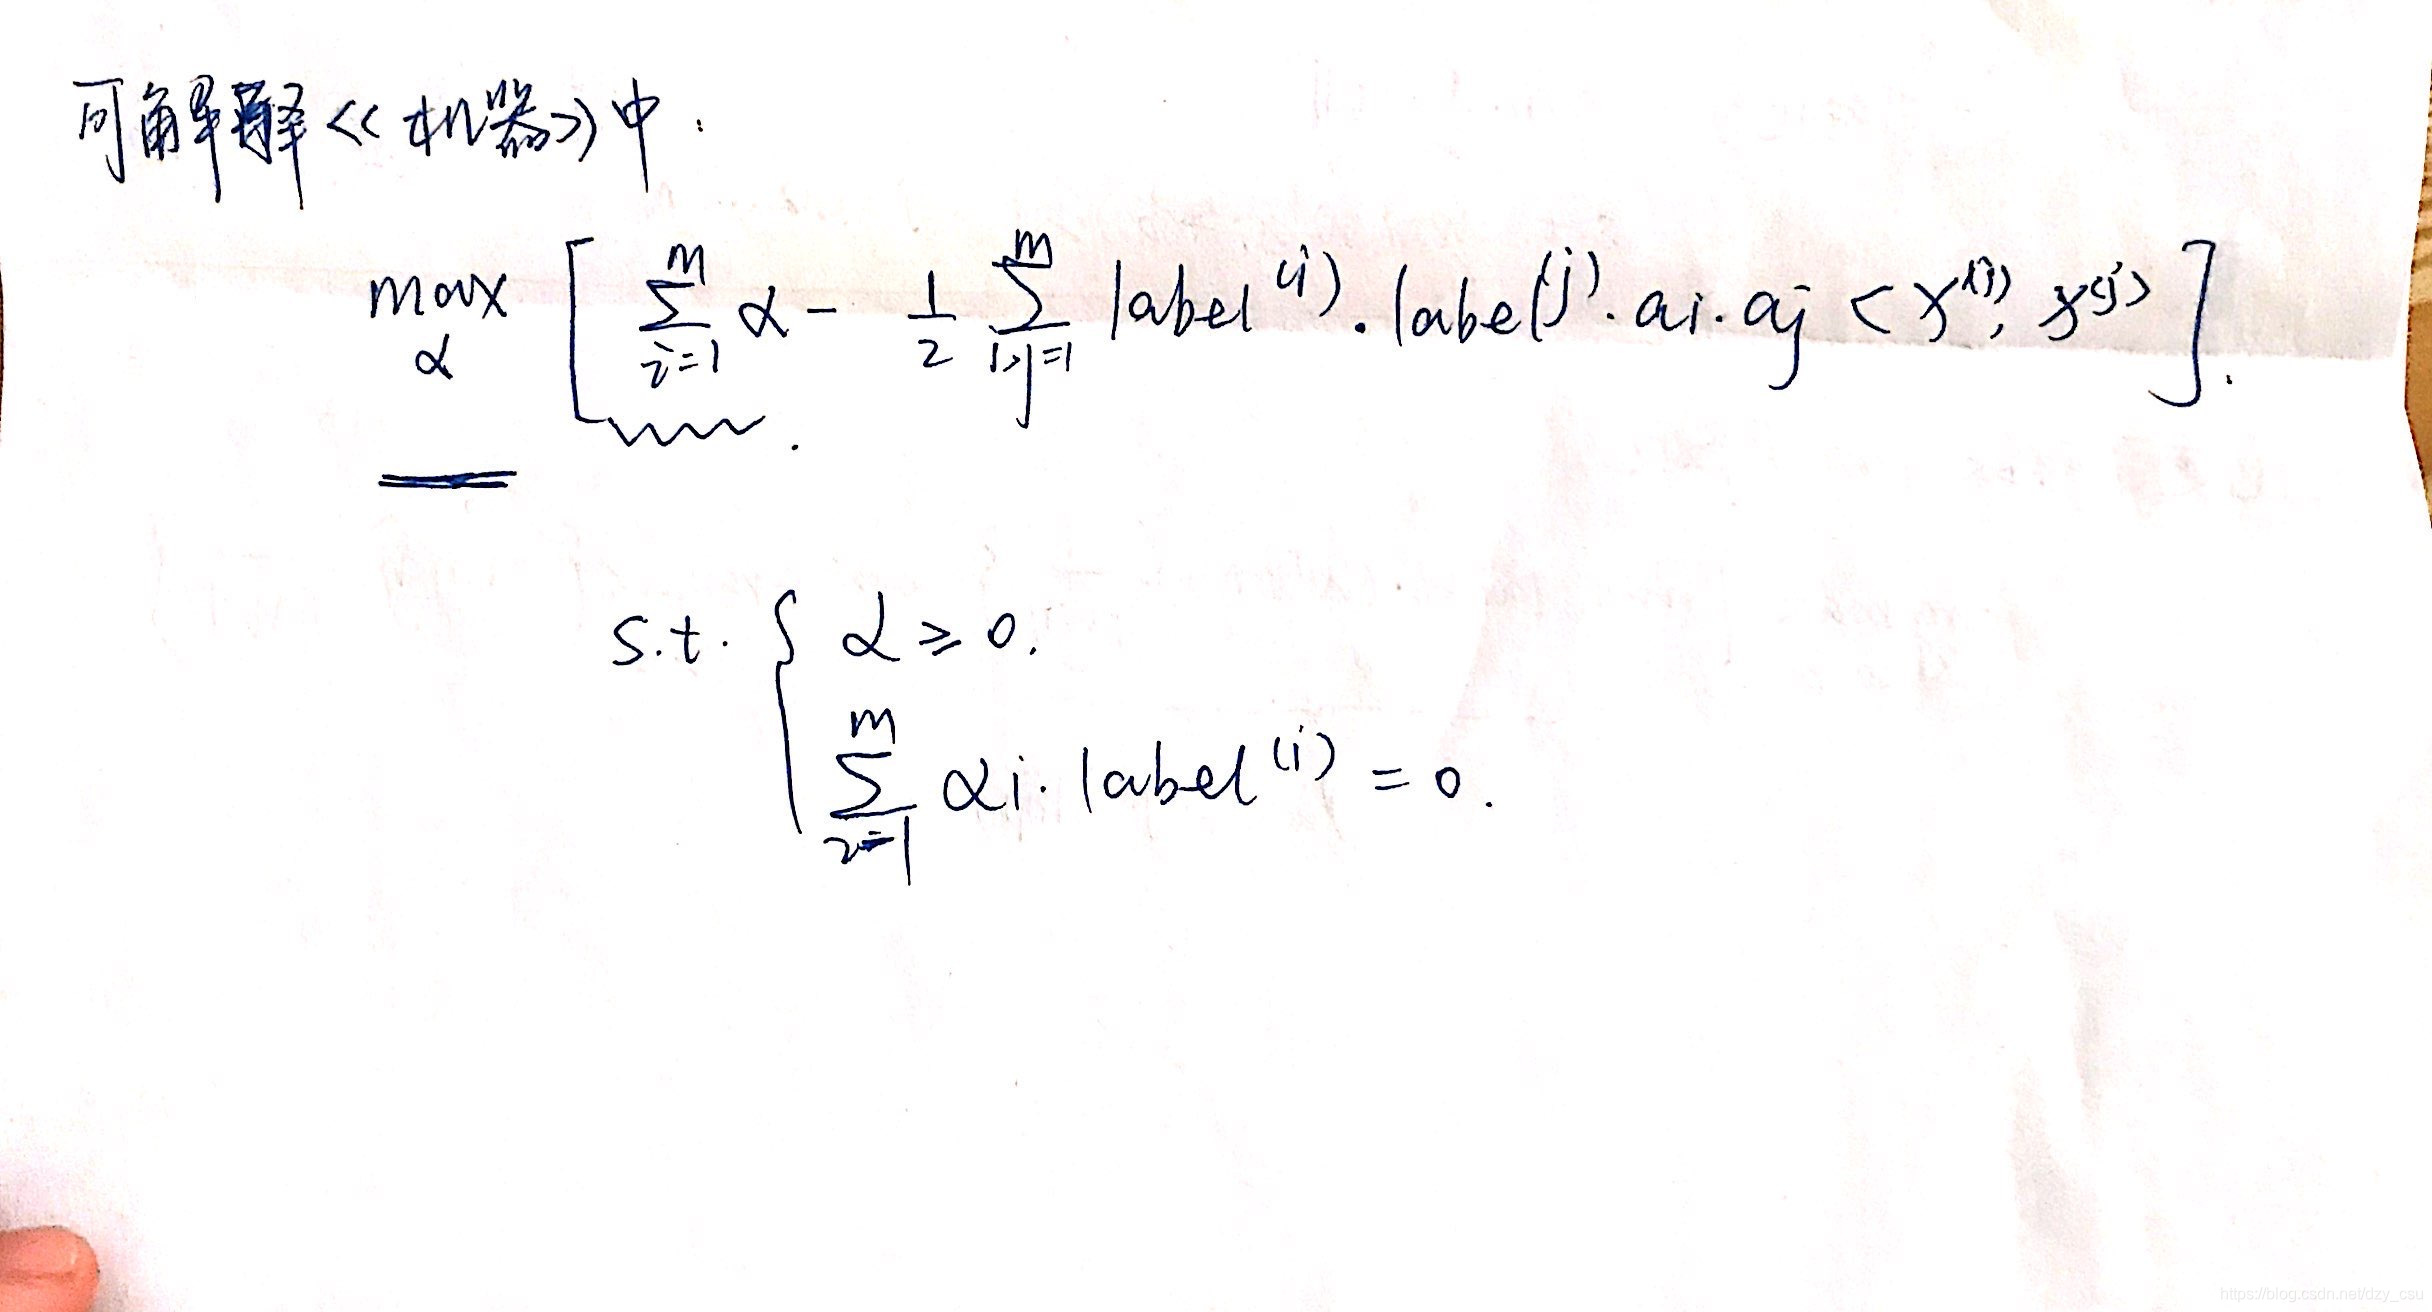 可解释<<机器>>中:
max α [ Σ_{i=1}^{m} α - 1/2 Σ_{i,j=1}^{m} label^{(i)}. label^{(j)}. ai. aj <x^{(i)}, x^{(j)}> ].
s.t. { α ≥ 0.
Σ_{i=1}^{m} αi. label^{(i)} = 0.
https://blog.csdn.net/dzy_csu